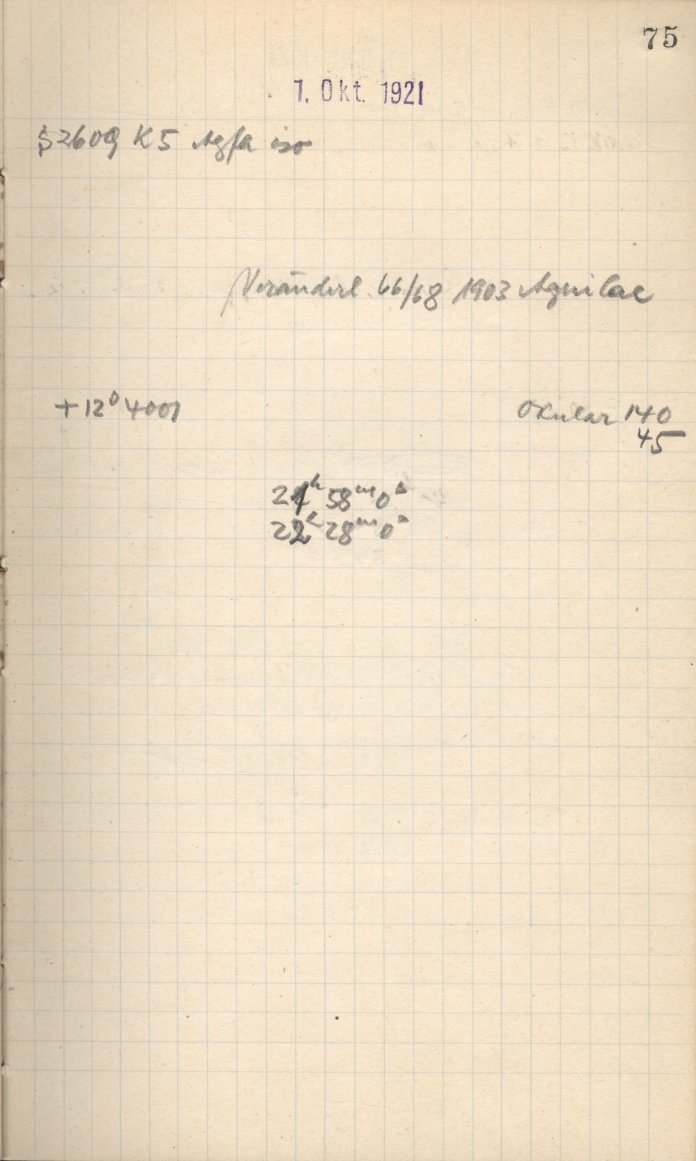 75
1. Okt. 1921
S 2609 K5 Agfa iso
Veränderl. 66/68 1903 Aquilae
+12° 4001
Okular 140
45
21ʰ 58ᵐ 0ˢ
22ʰ 28ᵐ 0ˢ